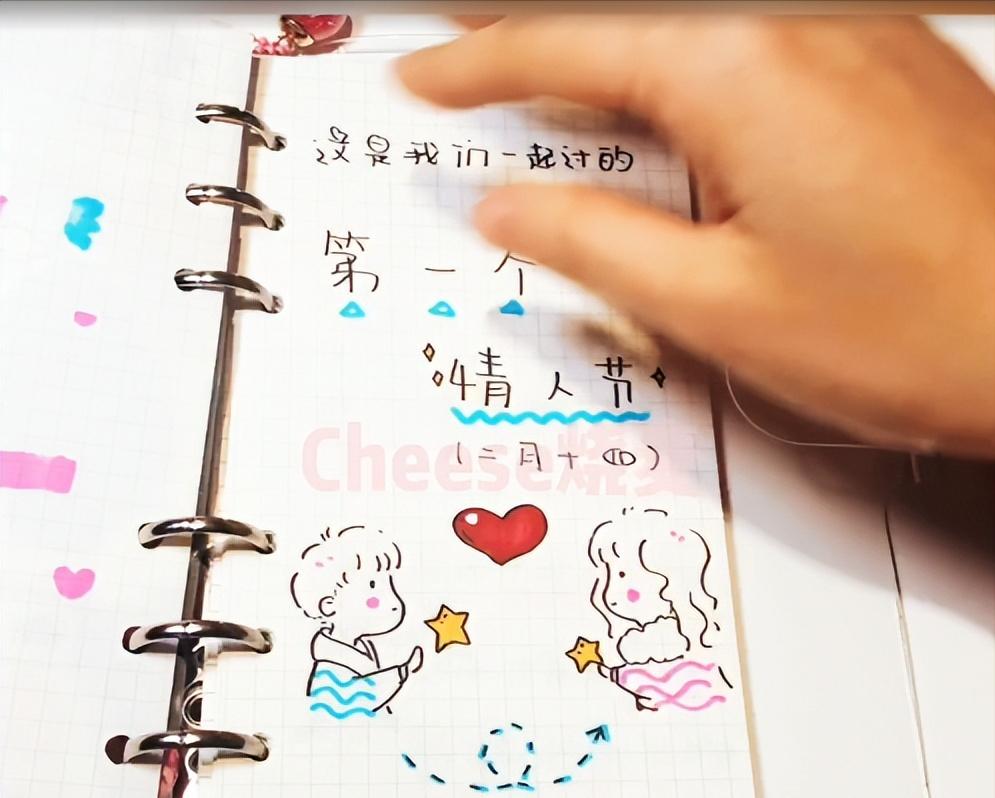 这是我们一起过的
第一个
情人节
(二月十四)
Cheese烧麦